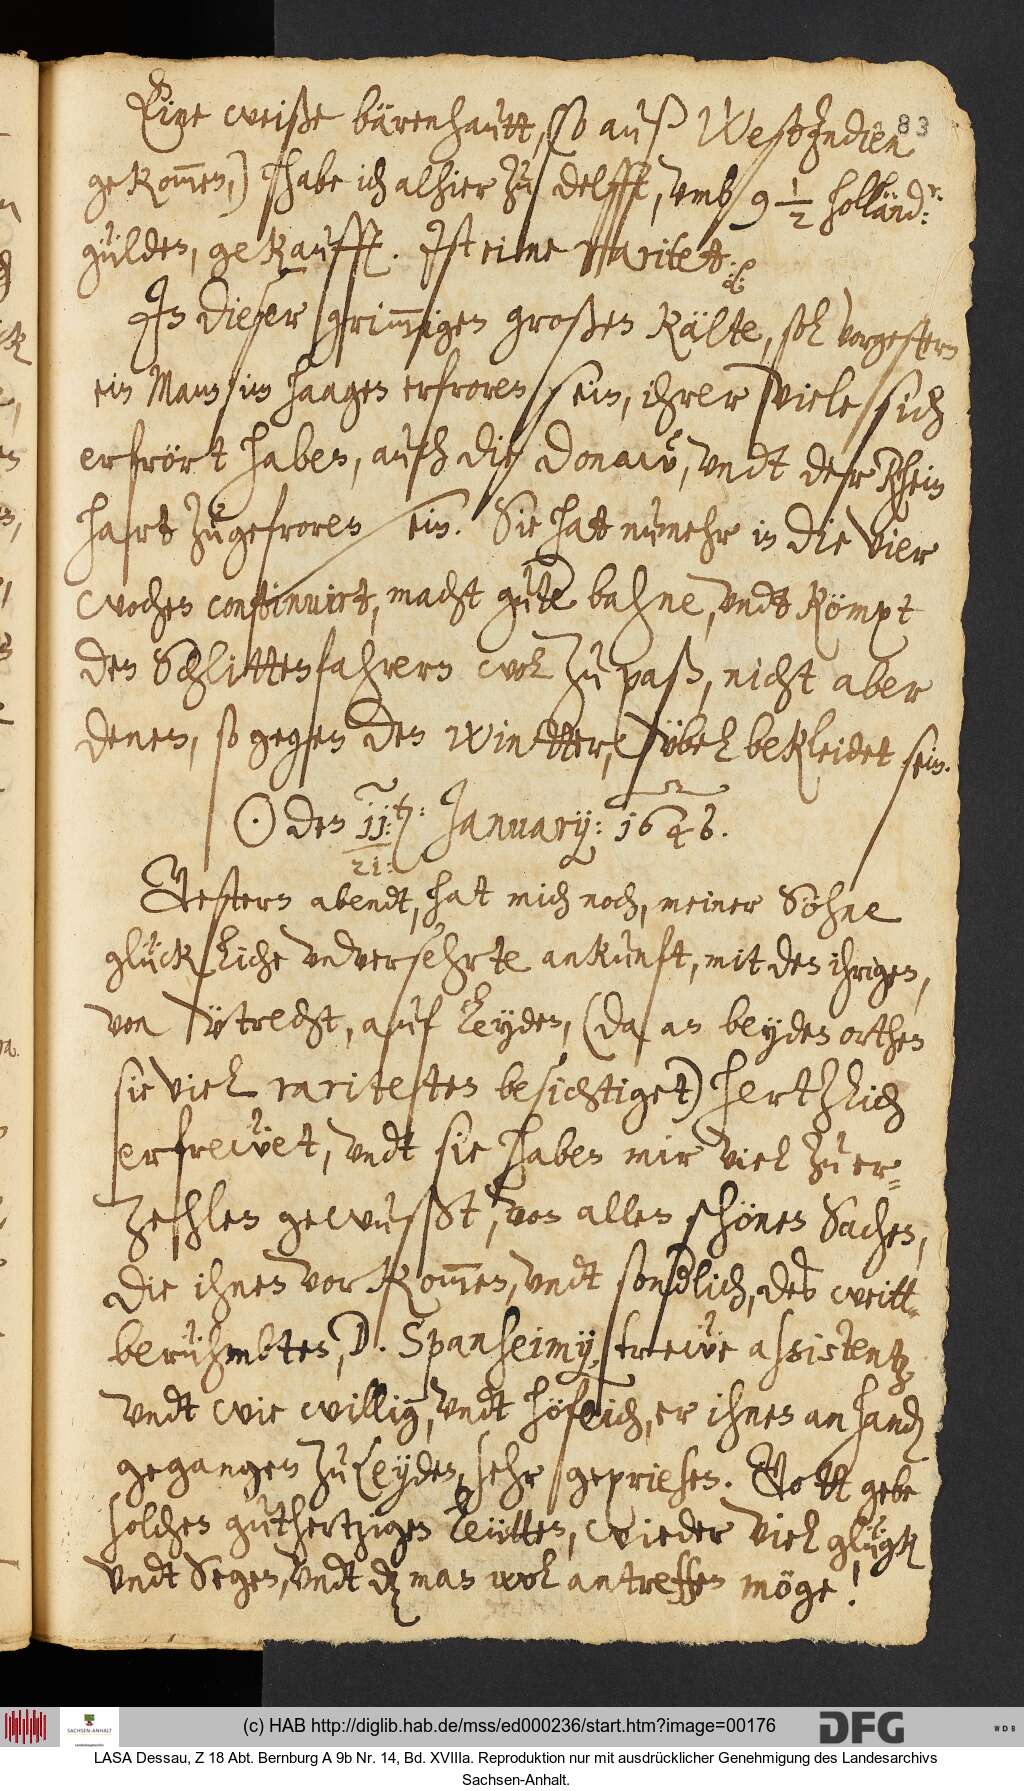 83
Eine weiße bärenhautt, (so auß WestJndien
gekom̅en,) habe ich alhier zu delfft, vmb 9 1/2 holländ:r.
gulden, gekaufft. Jst eine raritet.
Jn dieser grim̅igen großen Kälte, sol vorgestern
ein Mann im Haagen erfroren sein, ihrer viele sich
erfrört haben, auch die Donaw, vndt der Rhein
hart zugefroren sein. Sie hat nu̅mehr in die vier
wochen continuirt, macht gute bahne, vndt kömpt
den Schlittenfahrern wol zu paß, nicht aber
denen, so gegen den wintter, übel bekleidet sein.
☉ den 11: / 21: t. January: 1646.
Gestern abendt, hat mich noch, meiner Söhne
glückliche vnversehrte ankunft, mit den ihrigen,
von ütrecht, auf Leyden, (da an beyden orthen
sie viel rariteten besichtiget) hertzlich
erfrewet, vndt sie haben mir viel zu er-
zehlen gewußt, von allen schönen Sachen,
die ihnen vorkom̅en, vndt sondlich, des weitt-
berühmbten, D. Spanheimÿ, trewe assistentz
vndt wie willig, vndt höflich, er ihnen an handt
gegangen zu Leyden, sehr gepriesen. Gott gebe
solchen guthertzigen Leütten, wieder viel glügk
vndt Segen, vndt dz man wol antreffen möge!
(c) HAB http://diglib.hab.de/mss/ed000236/start.htm?image=00176
SACHSEN-ANHALT
DFG
WDB
LASA Dessau, Z 18 Abt. Bernburg A 9b Nr. 14, Bd. XVIIIa. Reproduktion nur mit ausdrücklicher Genehmigung des Landesarchivs
Sachsen-Anhalt.